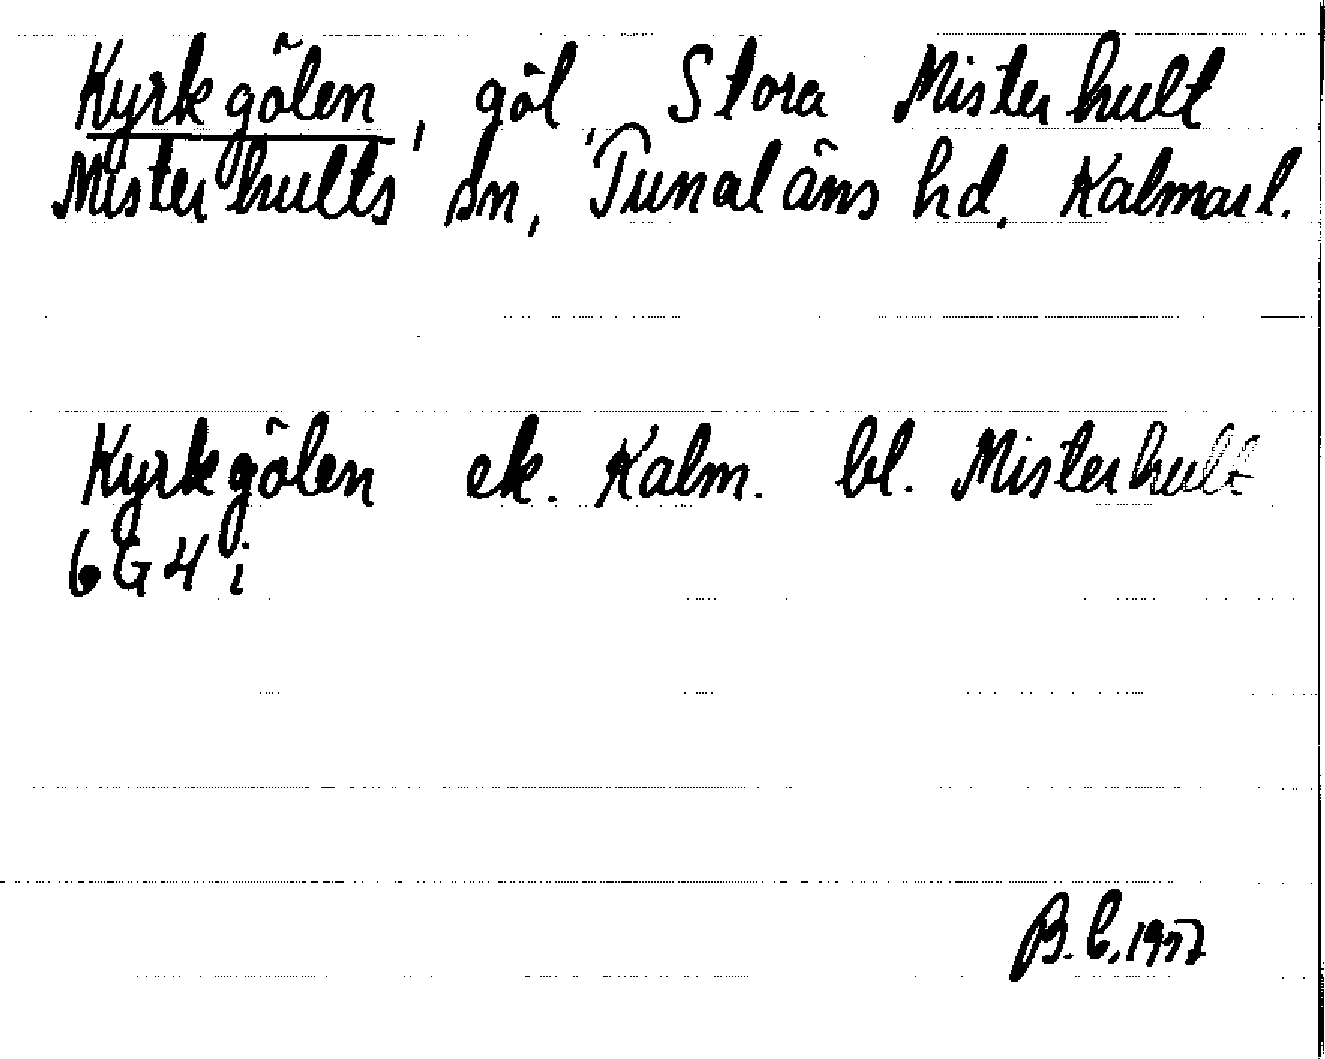 Kyrkgölen, göl, Stora Misterhult
Misterhults sn, Tunaläns hd. Kalmar l.
Kyrkgölen ek. Kalm. bl. Misterhult
6G4i
B. C. 1977